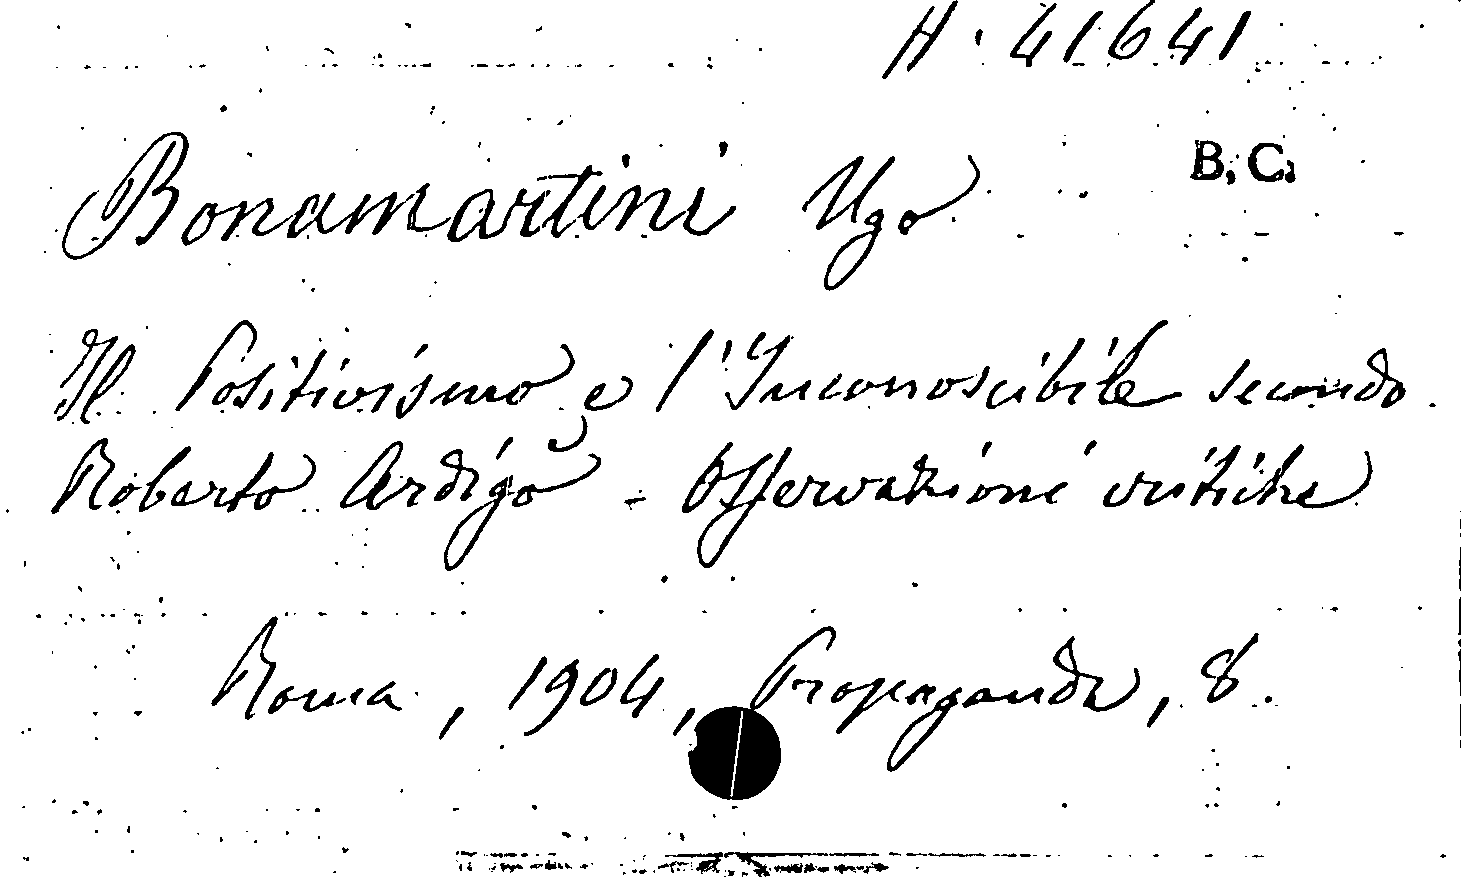 H. 41641
B. C.
Bonamartini Ugo
Il Positivismo e l'Inconoscibile secondo
Roberto Ardigò - Osservazioni critiche
Roma, 1904, Propaganda, 8.